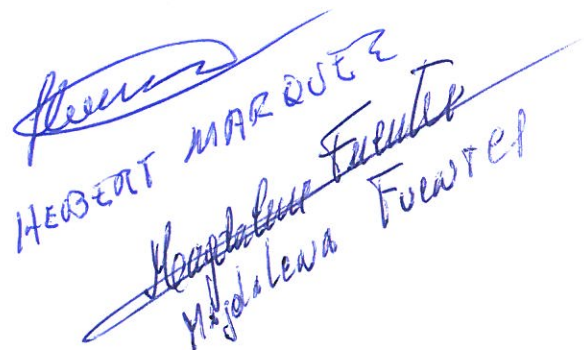 HEBERT MARQUEZ
Magdalena Fuentes
Magdalena Fuentes